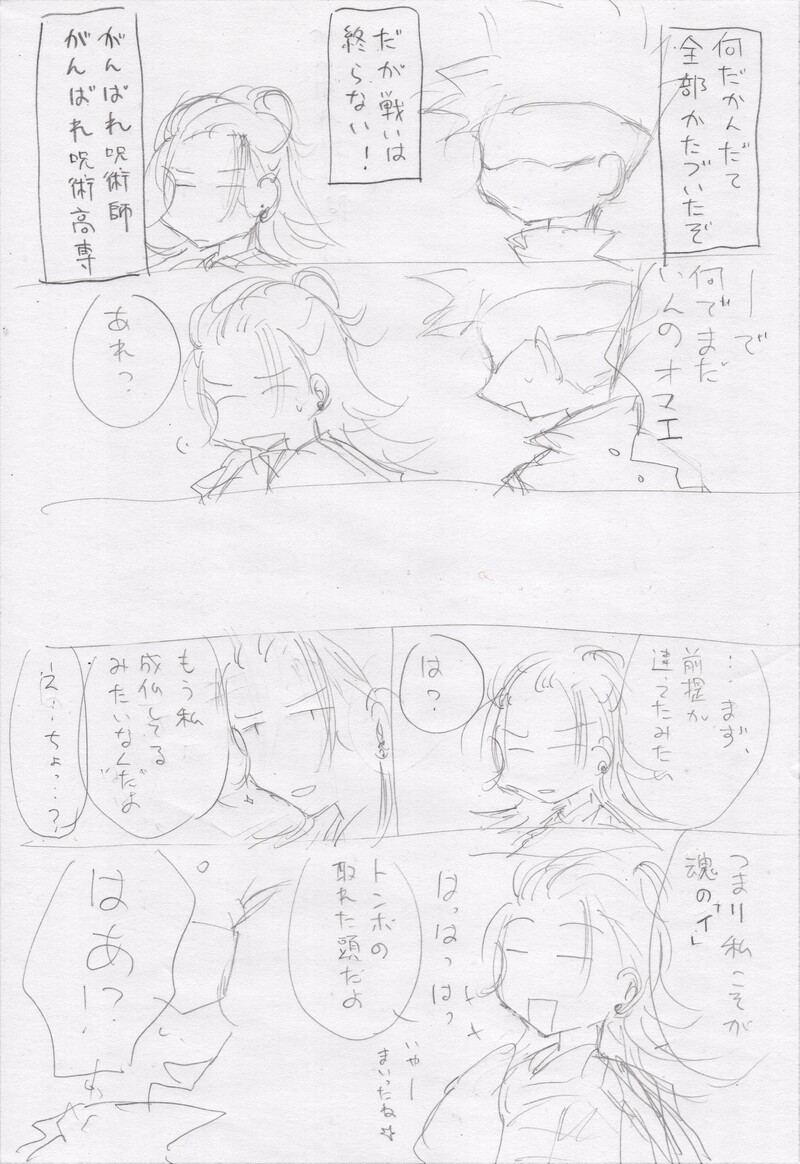 何だかんだで
全部かたづいたぞ
だが戦いは
終らない！
がんばれ呪術師
がんばれ呪術高専
ーで
何でまだ
いんのオマエ
あれっ
…まず、
前提が
違ってたみたい
は？
もう私
成仏してる
みたいなんだよ
え…ちょっ…？
つまり私こそが
魂の「イ」
はっはっはっ
トンボの
取れた頭だよ
いやー
まいったね☆
はあ!?